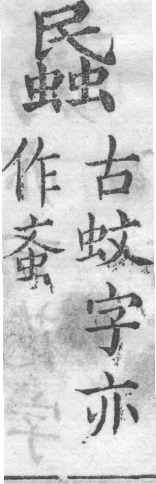 蟁
古蚊字亦
作蚉